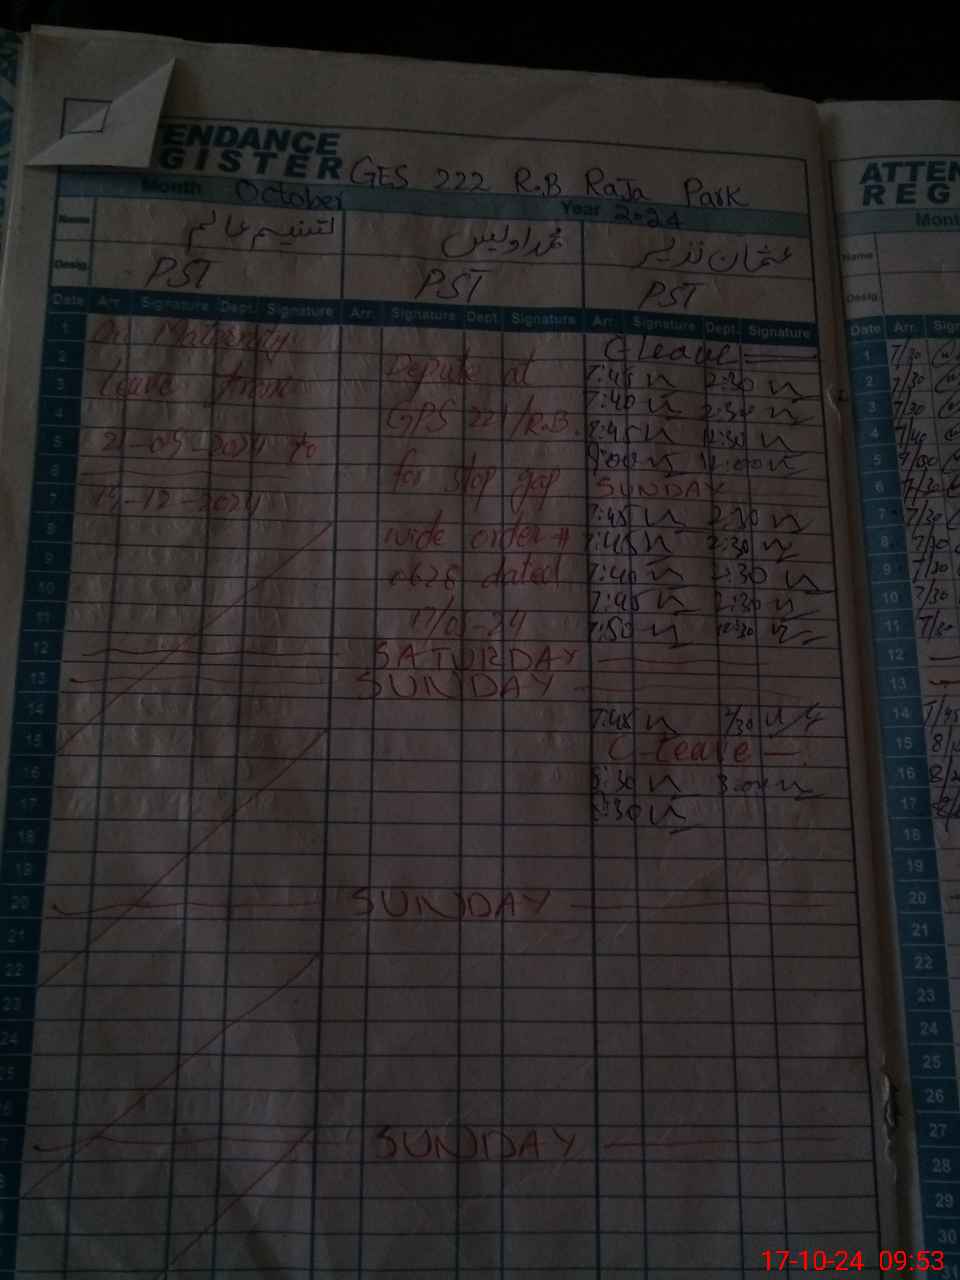 TENDANCE
GISTER GES 222 R.B Raja Park
Month October Year 2024
Name تسنیم عالم محمد اویس عثمان نذیر
Desig. PST PST PST
Date Arr. Signature Dept. Signature Arr. Signature Dept Signature Arr. Signature Dept. Signature
1 On Maternity C-Leave
2 Depute at 7:45 2:30
3 Leave from 7:40 2:30
4 GPS 221/R.B. 8:45 12:30
5 21-09-2024 to 9:00 12:00
6 for stop gap SUNDAY
7 19-12-2024 7:45 2:30
8 wide order # 7:45 2:30
9 dated 7:40 2:30
10 7:45 2:30
11 7:50 12:30
12 SATURDAY
13 SUNDAY
14 7:45 2/30
15 C-Leave
16 8:30 3:00
17 8:30
18
19
20 SUNDAY
21
22
23
24
25
26
27 SUNDAY
ATTEN
REG
Mont
Name
Desig.
Date Arr. Sig
1 7/30
2 7/30
3 7/30
4 7/40
5
6
7 7/30
8 7/30
9 7/30
10 7/30
11 7/30
12
13
14
15
16
17
18
19
20
21
22
23
24
25
26
27
28
29
30
17-10-24 09:53